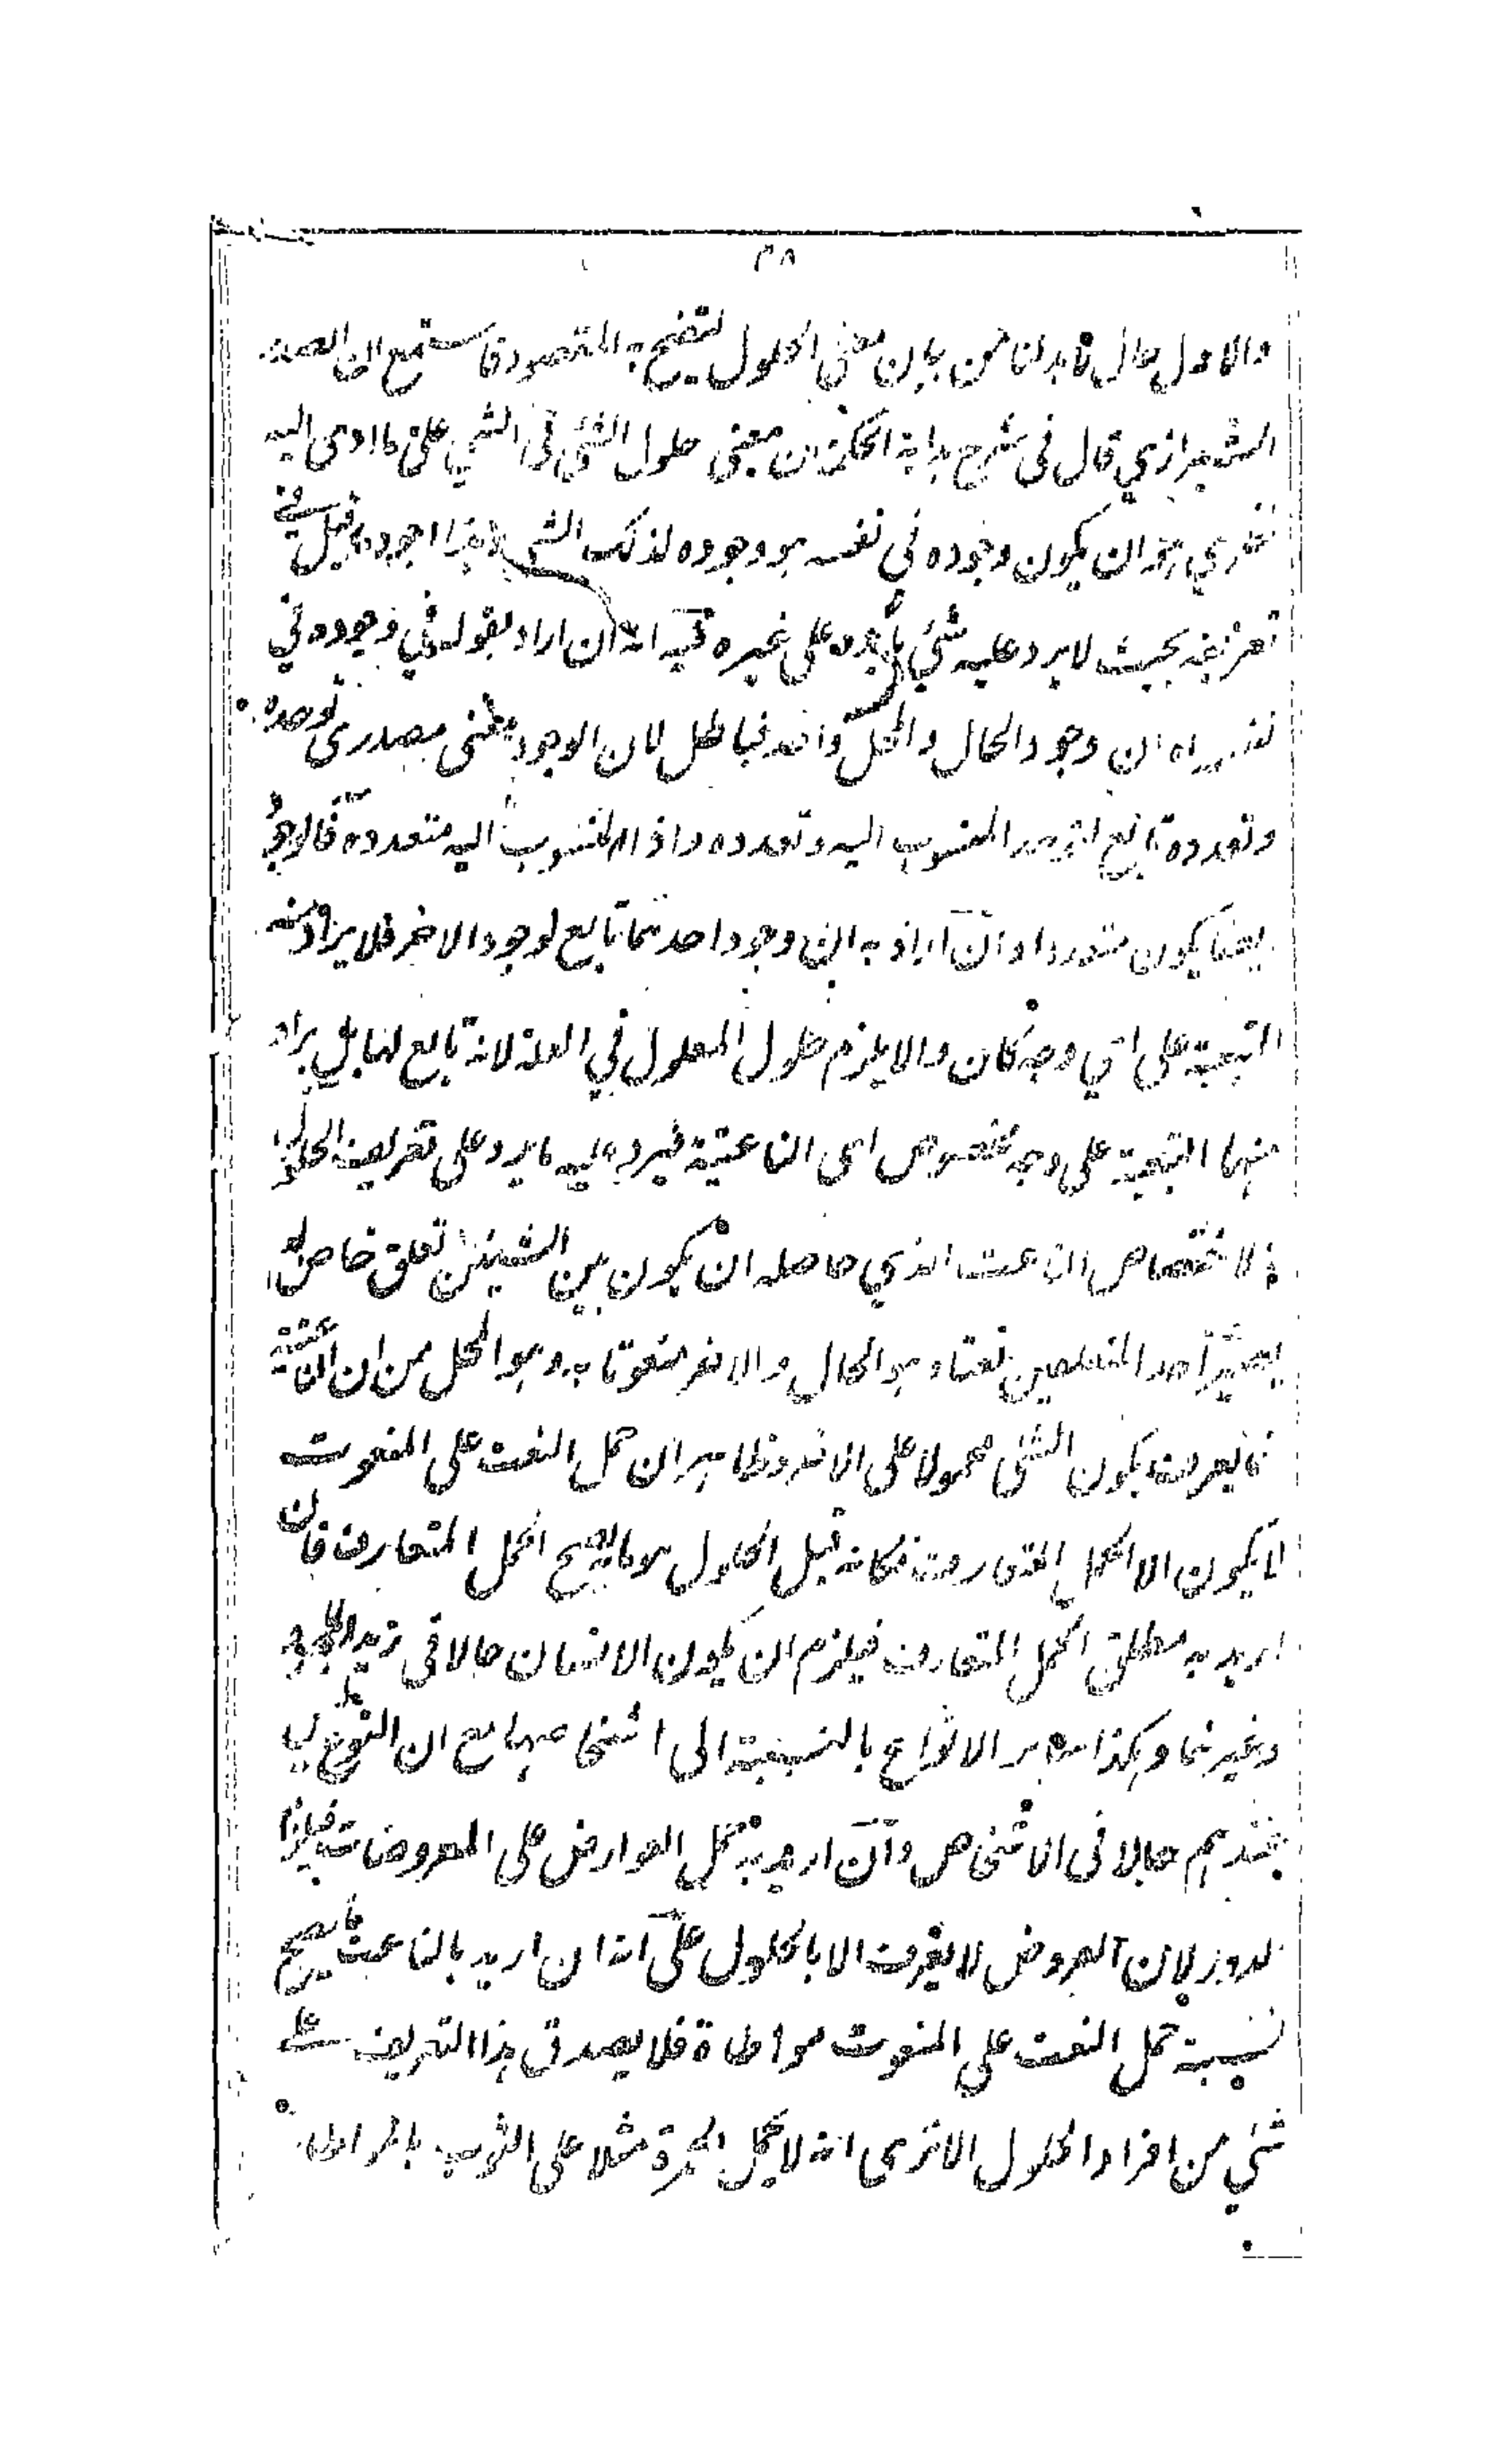 ٣٨
والاول حال فلا بد لنا من بيان معنى الحلول ليتضح به المقصود فاستمع ان الصدر
الشيرازي قال في شرح هداية الحكمة ان معنى حلول الشئ في الشئ على ما ادى اليه
نظري هو ان يكون وجوده في نفسه هو وجوده لذلك الشئ وهذا اجود ما قيل في
تعريفه بحيث لا يرد عليه شئ مما يرد على غيره فيه انه ان اراد بقوله هي وجوده في
نفسه اه ان وجود الحال والمحل واحد فباطل لان الوجود معنى مصدري توحده
وتعدده تابع لتوحد المنسوب اليه وتعدده واذ المنسوب اليه متعددة فالوجود
ايضا يكون متعددا وان اراد به ان وجود احدهما تابع لوجود الاخر فلا يراد منه
التبعية على اي وجه كان والا يلزم حلول المعلول في العلة لانه تابع لها بل يراد
منها التبعية على وجه مخصوص اى الناعتية فيرد عليه ما يرد على تعريف الحلول
بالاختصاص الناعت الذي حاصله ان يكون بين الشيئين تعلق خاص به
يصير احد المتعلقين نعتا وهو الحال والاخر منعوتا به وهو المحل من ان الناعتية
ما يعرف بكون الشئ محمولا على الاخر وظاهر ان حمل النعت على المنعوت
لا يكون الا الحمل المتعارف فكانه قيل الحلول هو ما يصح الحمل المتعارف فان
اريد به مطلق الحمل المتعارف فيلزم ان يكون الانسان حالا في زيد وعمرو
وغيرهما وهكذا سائر الانواع بالنسبة الى اشخاصها مع ان النوع ليس
عندهم حالا في الاشخاص وان اريد به حمل العوارض على المعروضات فيلزم
الدور لان العروض لا يعرف الا بالحلول على انه ان اريد بالناعت ما يصح
نسبة حمل النعت على المنعوت مواطاة فلا يصدق هذا التعريف على
شئ من افراد الحلول الا ترى انه لا يحمل الحمرة مثلا على الثوب بالمواطاة